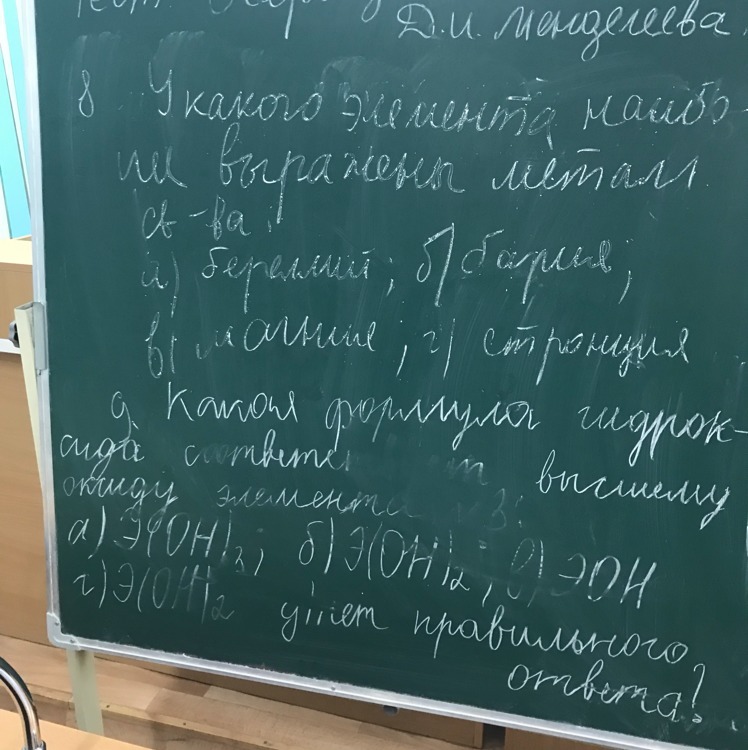 Д.И. Менделеева.
8 У какого элемента наибо-
лее выражены металл.
св-ва:
а) бериллий; б) бария;
в) магния; г) стронция
9. Какая формула гидрок-
сида соответствует высшему
оксиду элемента №3:
а) Э(ОН)3; б) Э(ОН)2; в) ЭОН
г) Э(ОН)2 нет правильного
ответа!